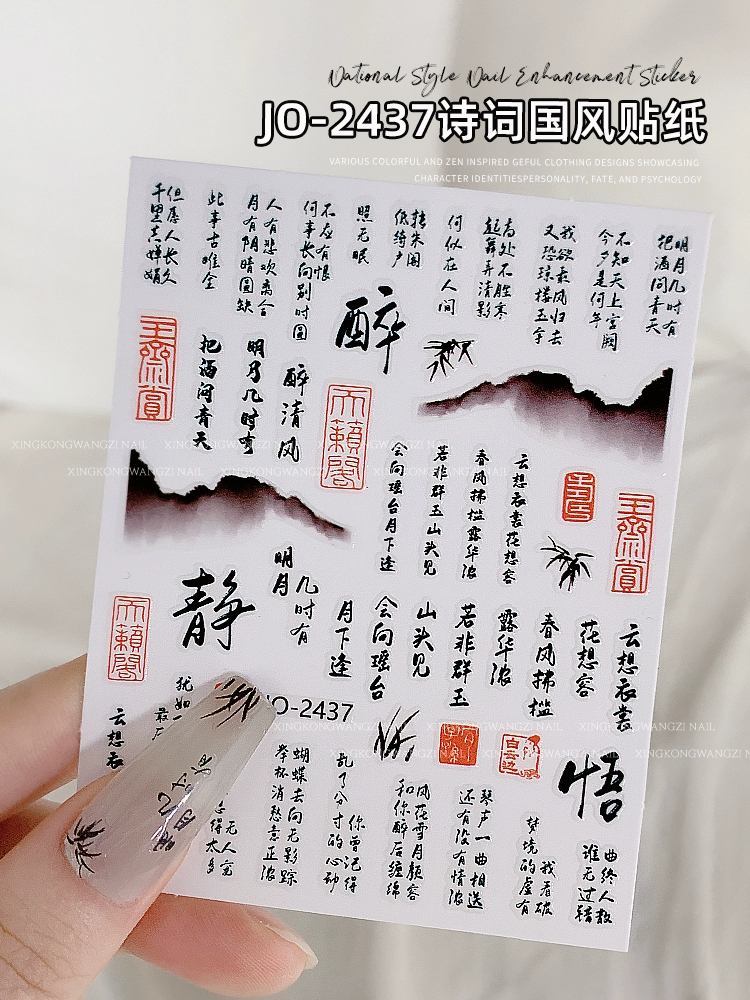 National Style Nail Enhancement Sticker
JO-2437诗词国风贴纸
VARIOUS COLORFUL AND ZEN INSPIRED GEFUL CLOTHING DESIGNS SHOWCASING
CHARACTER IDENTITIESPERSONALITY, FATE, AND PSYCHOLOGY
明月几时有
把酒问青天
不知天上宫阙
今夕是何年
我欲乘风归去
又恐琼楼玉宇
高处不胜寒
起舞弄清影
何似在人间
转朱阁
低绮户
照无眠
不应有恨
何事长向别时圆
人有悲欢离合
月有阴晴圆缺
此事古难全
但愿人长久
千里共婵娟
醉
醉清风
明月几时有
把酒问青天
云想衣裳花想容
春风拂槛露华浓
若非群玉山头见
会向瑶台月下逢
静
明月
几时有
云想衣裳
花想容
春风拂槛
露华浓
若非群玉
山头见
会向瑶台
月下逢
JO-2437
云想衣
悟
曲终人散
谁无过错
我看破
梦境的虚有
琴声一曲相送
还有没有情浓
风花雪月颜容
和你醉后缠绵
你曾记得
乱了分寸的心动
蝴蝶去向无影踪
举杯消愁意正浓
无人宠
XINGKONGWANGZI NAIL XINGKONGWANGZI NAIL XINGKONGWANGZI NAIL XINGKONGWANGZI NAIL
XINGKONGWANGZI NAIL XINGKONGWANGZI NAIL XINGKONGWANGZI NAIL